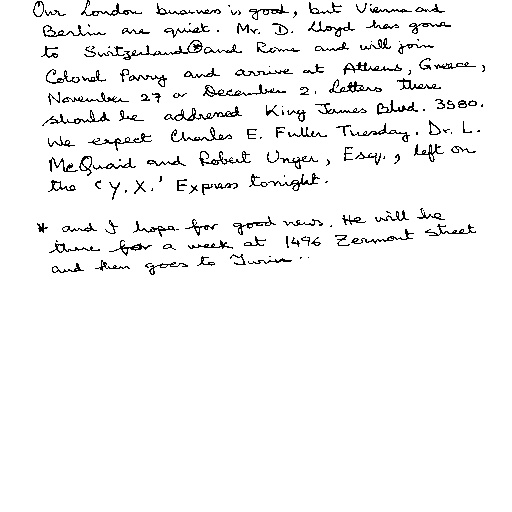 Our London business is good, but Vienna and
Berlin are quiet. Mr. D. Lloyd has gone
to Switzerland * and Rome and will join
Colonel Parry and arrive at Athens, Greece,
November 27 or December 2. Letters there
should be addressed King James Blvd. 3580.
We expect Charles E. Fuller Tuesday. Dr. L.
McQuaid and Robert Unger, Esq., left on
the 'Y. X.' Express tonight.
* and I hope for good news. He will be
there for a week at 1496 Zermont Street
and then goes to Turin ..